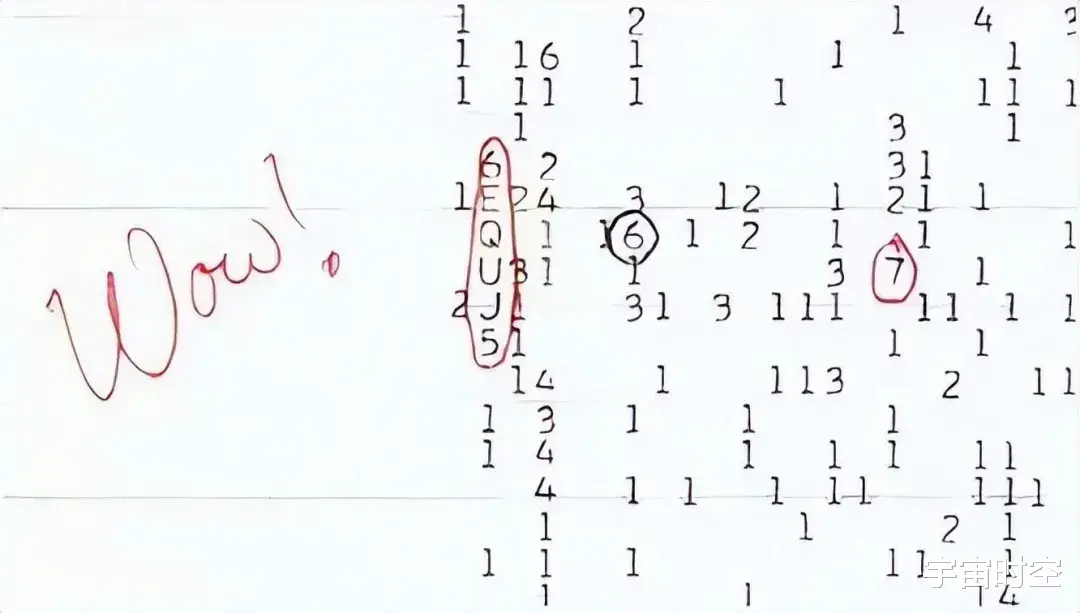 1 2 1 4 3
1 16 1 1 1
1 11 1 1 11 1
1 3 1
6 2 31
1E24 3 12 1 21 1
Q 1 16 1 2 1 1 1
U31 1 3 7 1
2J1 31 3 111 11 1 1
51 1 1
14 1 113 2 11
1 3 1 1 1
1 4 1 1 1 11
4 1 1 1 11 111
1 1 2 1
1 1 1 11 1
1 1 14
Wow!
宇宙时空